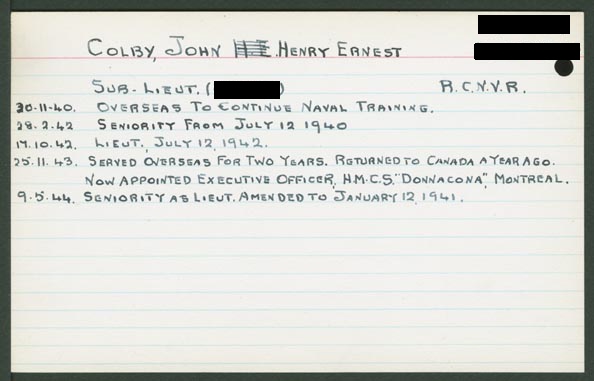 COLBY, JOHN HENRY ERNEST
SUB-LIEUT. ( ) R.C.N.V.R.
30.11.40. OVERSEAS TO CONTINUE NAVAL TRAINING.
28.2.42 SENIORITY FROM JULY 12 1940
17.10.42. LIEUT., JULY 12, 1942.
25.11.43. SERVED OVERSEAS FOR TWO YEARS. RETURNED TO CANADA A YEAR AGO.
NOW APPOINTED EXECUTIVE OFFICER, H.M.C.S. "DONNACONA", MONTREAL.
9.5.44. SENIORITY AS LIEUT. AMENDED TO JANUARY 12, 1941.